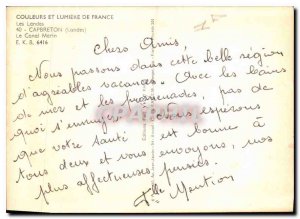 COULEURS ET LUMIERE DE FRANCE
Les Landes
40 - CAPBRETON (Landes)
Le Canal Marin
E. K. B. 6416
Chers Amis,
Nous passons dans cette belle région
d'agréables vacances. Avec les bains
de mer et les promenades, pas de
quoi s'ennuyer. Nous espérons
que votre santé est bonne à
tous deux et vous envoyons, nos
plus affectueuses pensées.